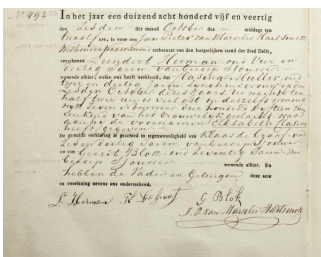 No. 492
In het jaar een duizend acht honderd vijf en veertig
den Zesden der maand October des middags ten
twaalf ure, is voor ons Jan Pieter van Marselis Hartsinck
Wethouder ambtenaar van den burgerlijken stand der Stad Delft,
verschenen Leendert Herman, oud Vier en
dertig Jaren van beroep Sjouwer
wonende alhier, welke ons heeft verklaard, dat Muller, oud
en dertig Jaren zijne huisvrouw op den
Zesden October dezes Jaars des nachts ten
half twee ure is verlost in derzelver woning
Wijk Nummer honderd van
een kind van het Vrouwelijk geslacht, waar
aan zij de voornamen Elisabeth
heeft gegeven
en gemelde verklaring is geschied in tegenwoordigheid van Klaas de Graaf, oud
Zes en dertig Jaren van beroep Sjouwer
en van Gerrit Blok, oud Zeventig Jaren van
beroep Sjouwer wonende alhier. En
hebben de Vader en Getuigen deze acte
na voorlezing nevens ons onderteekend.
L. Herman K. de Graaf G Blok
J. P. van Marselis Hartsinck